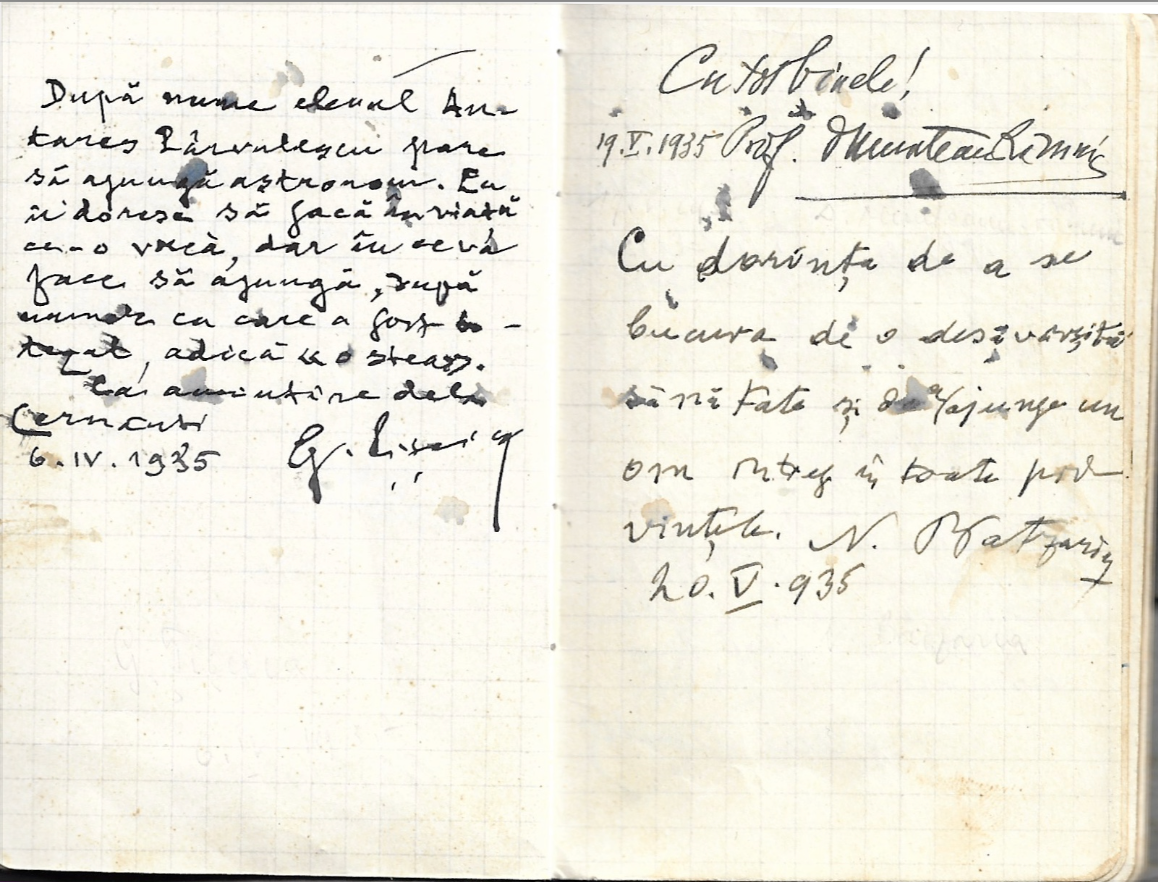 După nume elevul An-
tares Pârvulescu pare
să ajungă astronom. Eu
îi doresc să facă în viată
ce-o vrea, dar în ce va
face să ajungă, după
numele cu care a fost bo-
tezat, adică o steag.
Ca amintire dela
Cernăuti
6.IV.1935 G.
Cu tot binele!
19.V.1935 Prof. Munteanu Râmnic
Cu dorința de a se
bucura de o desăvârșită
sănătate și de a ajunge un
om întreg în toate pri-
vințele. N. Batzaria
20.V.935